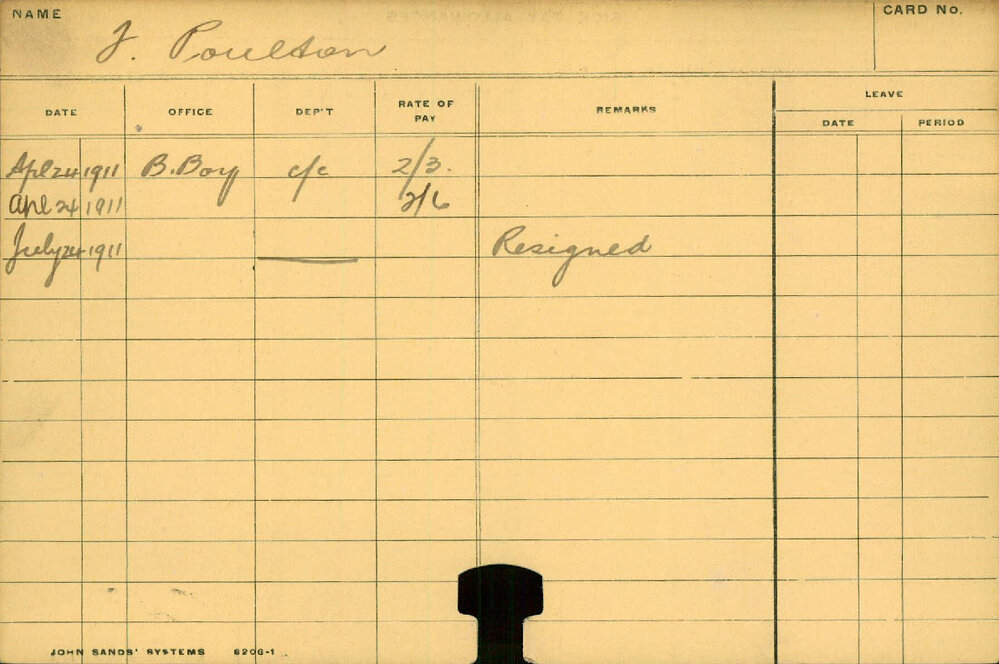 NAME
J. Poulton
CARD No.
DATE OFFICE DEP'T RATE OF PAY REMARKS LEAVE
DATE PERIOD
Apl 24 1911 B. Boy c/c 2/3.
Apl 24 1911 2/6
July 24 1911 Resigned
JOHN SANDS' SYSTEMS 6206-1